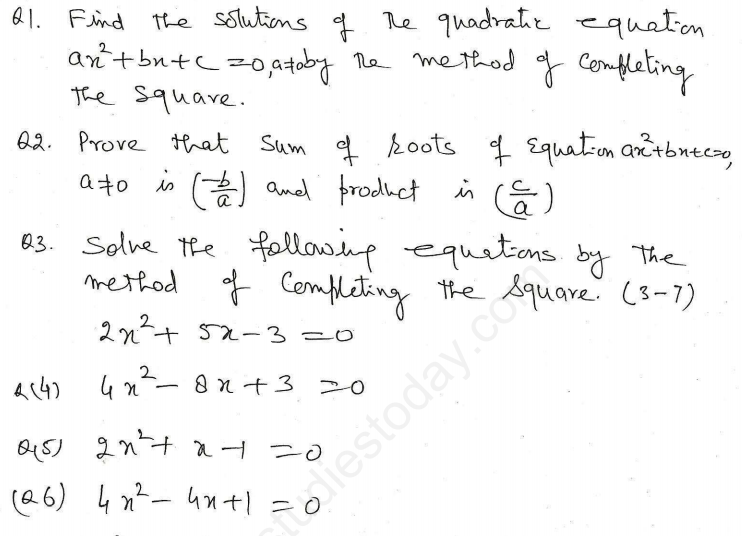 Q1. Find the solutions of the quadratic equation
ax²+bx+c=0,a≠0 by the method of Completing
the square.
Q2. Prove that sum of roots of Equation ax²+bx+c=0,
a≠0 is (-b/a) and product is (c/a)
Q3. Solve the following equations by the
method of Completing the square. (3-7)
2x²+ 5x-3 =0
Q(4) 4x²- 8x+3 =0
Q(5) 2x²+ x-1 =0
(Q6) 4x²- 4x+1 =0
studiestoday.com